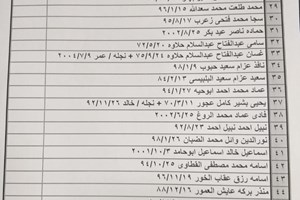 ٢٩ محمد طلعت محمد سعدالله ٩٦/١/١٥
٣٠ سجا محمد فتحي زعرب ٩٥/٨/١٧
٣١ حماده ناصر عيد بكر ٢٠٠٢/٨/٢٥
٣٢ سامي عبدالفتاح عبدالسلام حلاوه ٧٢/٥/٢٠
٣٣ غسان عبدالفتاح عبدالسلام حلاوه ٧٥/٩/٢٤ + نجله / عمر ٢٠٠٤/٧/٩
٣٤ نافذ عزام سعيد حبوب ٩٨/١/٩
٣٥ سعيد عزام سعيد البلبيسي ٨٤/٢/١٣
٣٦ عماد محمد احمد ابوحيه ٩٤/١/٧
٣٧ يحيى بشير كامل عجور ٧٠/٣/١١ + نجله / خالد ٩٢/١١/٢٦
٣٨ فادي عماد محمد الروغ ٢٠٠٢/٦/٢٥
٣٩ نبيل احمد نبيل احمد ٩٢/٨/٢٣
٤٠ نورالدين وائل محمد الضبان ٩٨/١/٢٦
٤١ اسماعيل خالد اسماعيل ابوحامد ٢٠٠١/١٠/٣
٤٢ اسامه محمد مصطفى القطاوى ٩٤/١٠/٢٥
٤٣ اسامه رزق عقاب الخور ٩٦/١١/١٩
٤٤ منذر بركه عايش العمور ٨٨/١٢/١٦